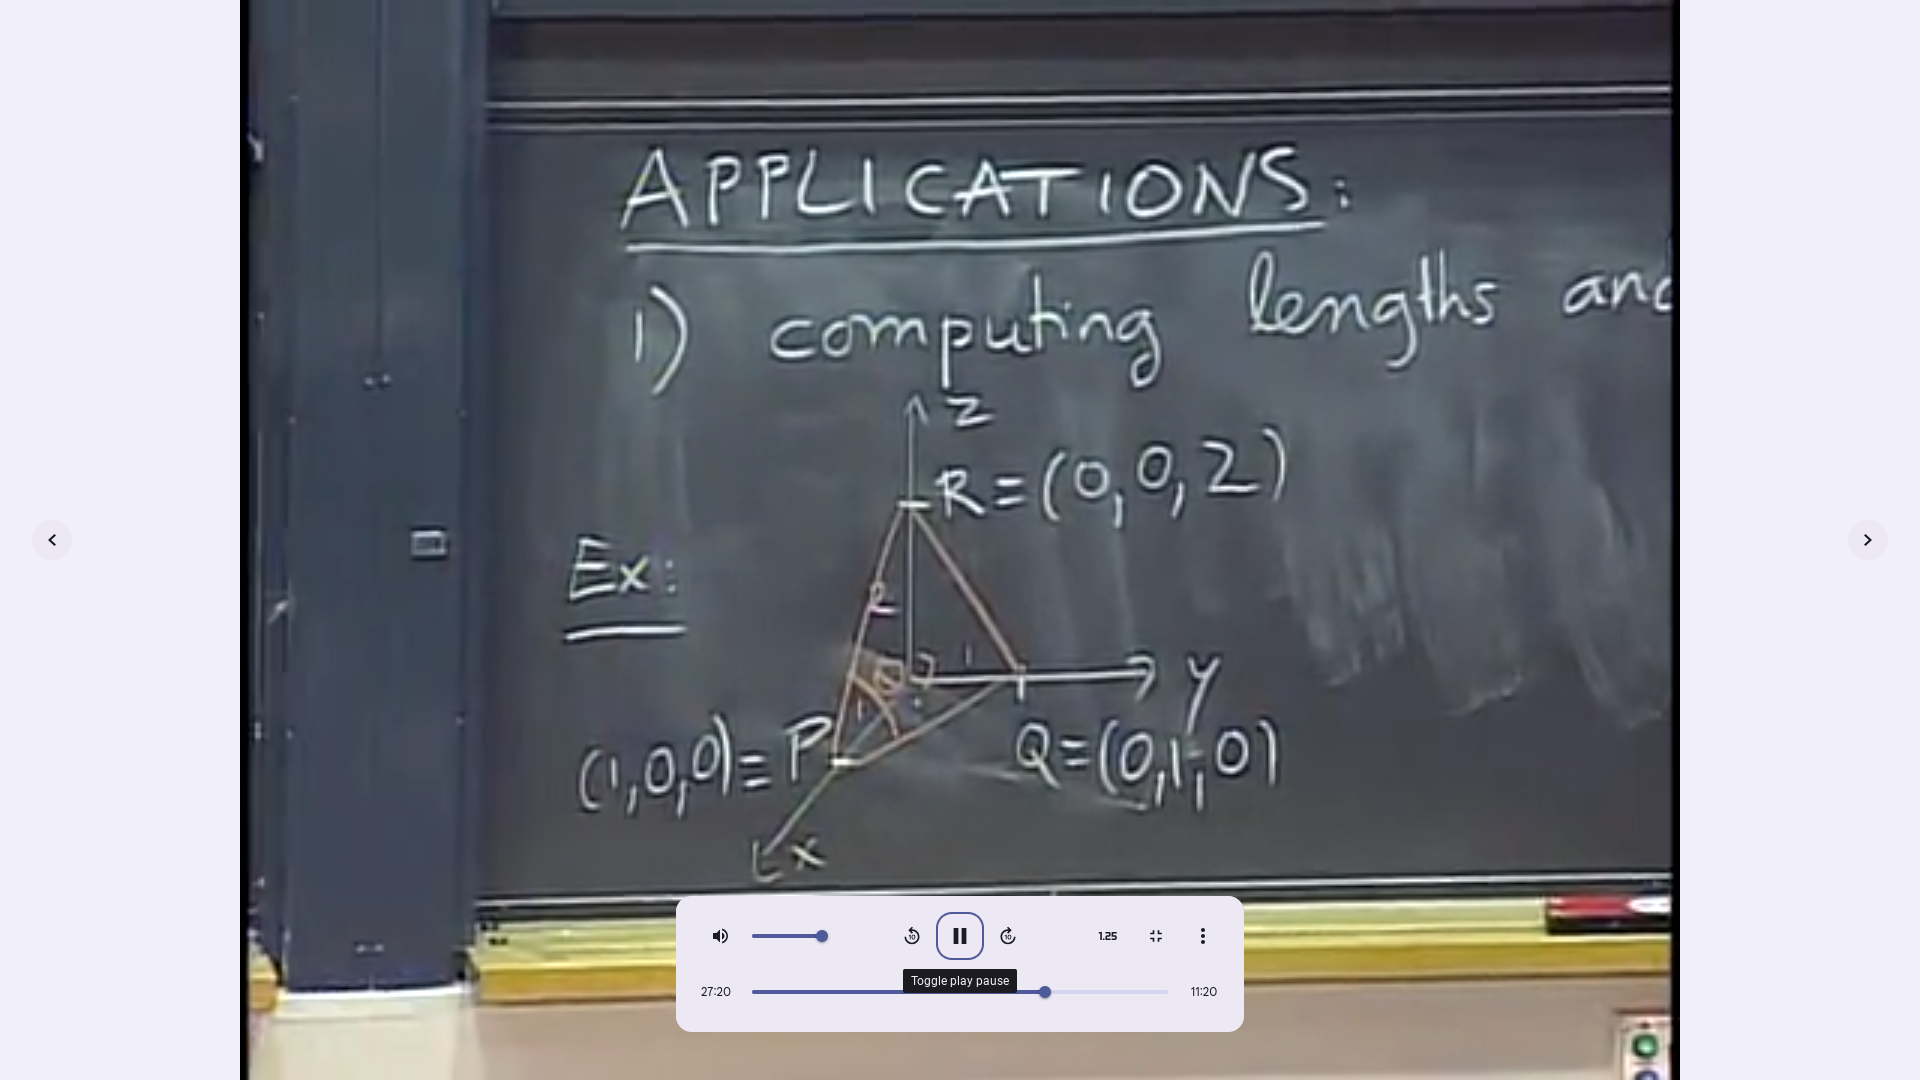 APPLICATIONS:
1) computing lengths and
z
R≡(0,0,2)
Ex:
2
1
y
1
(1,0,0)≡P
Q≡(0,1,0)
x
10
10
1.25
Toggle play pause
27:20
11:20